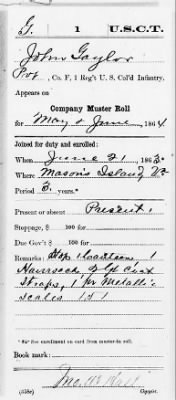 G. 1 U.S.C.T.
John Taylor
Pvt, Co. F, 1 Reg't U. S. Col'd Infantry.
Appears on
Company Muster Roll
for May & June, 1864.
Joined for duty and enrolled:
When June 21, 1863.
Where Masons Island Va
Period 3 years.*
Present or absent Present.
Stoppage, $ 100 for
Due Gov't $ 100 for
Remarks: Stop 1
Haversack
Straps, 1 Pr Metallic
Scales 1
*See enrollment on card from muster-in roll.
Book mark:
(358c) Copyist.